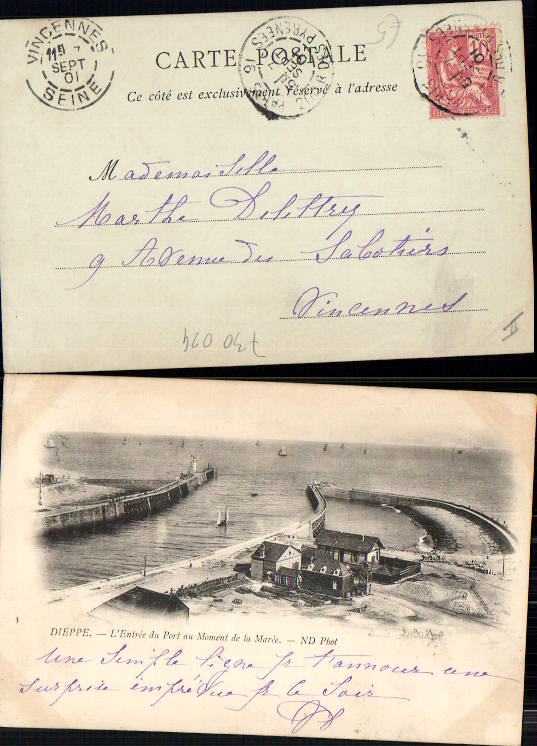 VINCENNES
11E 7
SEPT
01
SEINE
PYRENEES 16
CARTE POSTALE
10
Ce côté est exclusivement réservé à l'adresse
Mademoiselle
Marthe Delettrez
9 Avenue des Sabotiers
Vincennes
II
730 024
DIEPPE. — L'Entrée du Port au Moment de la Marée. — ND Phot
une simple ligne pr t'annoncer une
surprise imprévue pr le soir